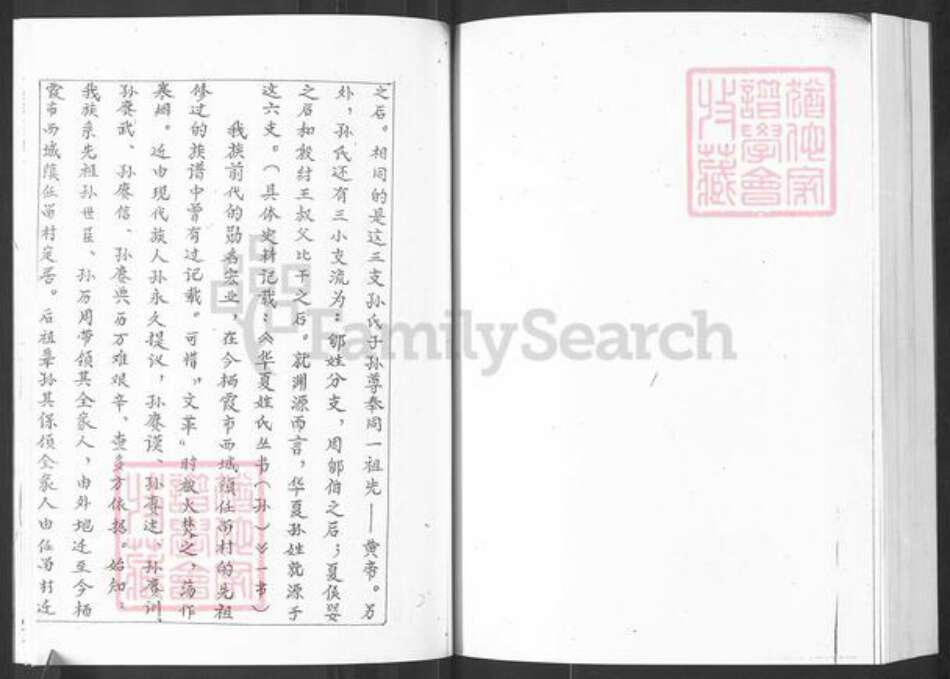 之后。相同的是这三支孙氏子孙尊奉同一祖先——黄帝。另
外，孙氏还有三小支流为：邬姓分支，周邬伯之后；夏侯婴
之后和殷纣王叔父比干之后。就渊源而言，华夏孙姓就源于
这六支。（具体史料记载：《华夏姓氏丛书（孙）》一书）
我族前代的勋名宏业，在今栖霞市西城颜任留村的先祖
修过的族谱中曾有过记载。可惜，"文革"时被火焚之，荡作
寒烟。近由现代族人孙永久提议，孙赓谟、孙赓述、孙赓训
孙赓武、孙赓信、孙赓典历万难艰辛，查多方依据。始知：
我族系先祖孙世臣、孙历周带领其全家人，由外地迁至今栖
霞市西城 任留村定居。后祖辈孙其保领全家人由任留村迁
猶他家
譜學會
收藏
猶他家
譜學會
收藏
FamilySearch